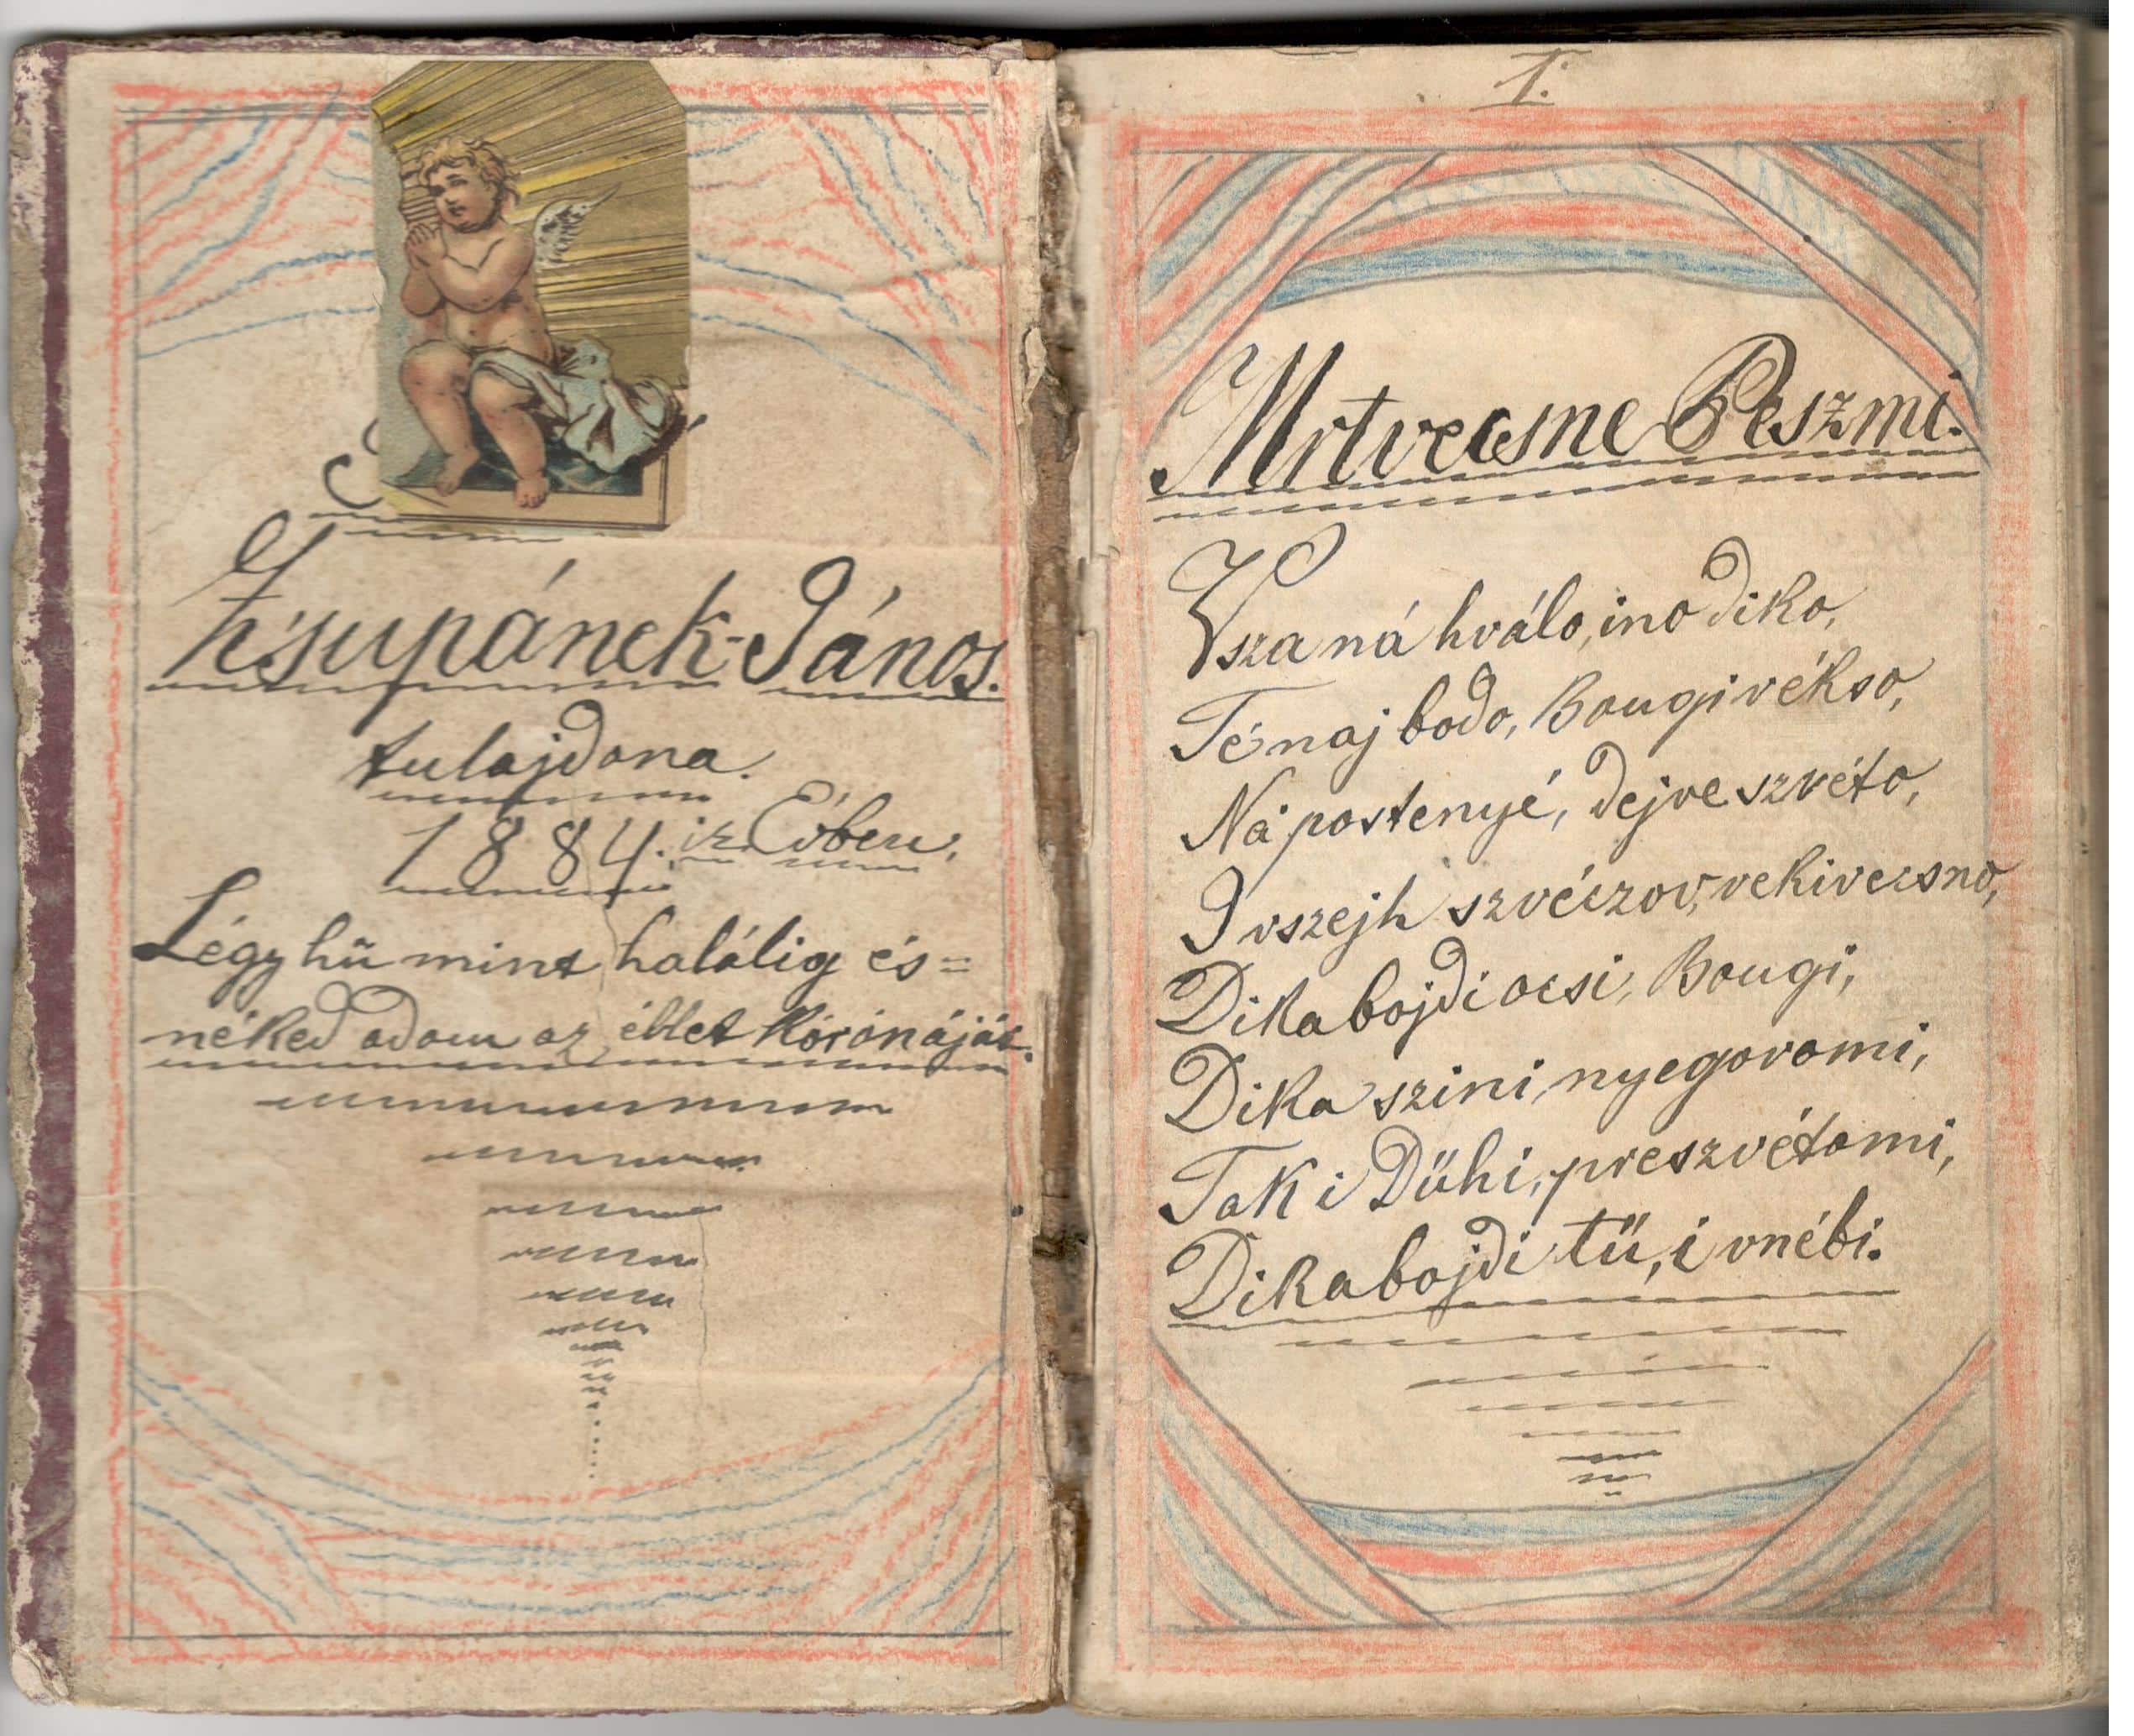 Zsupánek János.
tulajdona.
1884. ik Évben.
Légy hű mint halálig és=
néked adom az éllet koronáját.
1.
Mrtvecsne Peszmi.
Vsza ná hválo, ino diko,
Té naj bodo, Bougi vékso,
Na postenyé, dejve szvéto,
I vszejh szvéczov, vekivecsno,
Dika bojdi ocsi, Bougi,
Dika szini, nyegovomi,
Tak i Dühi, preszvétomi,
Dika bojdi tü, i vnébi.